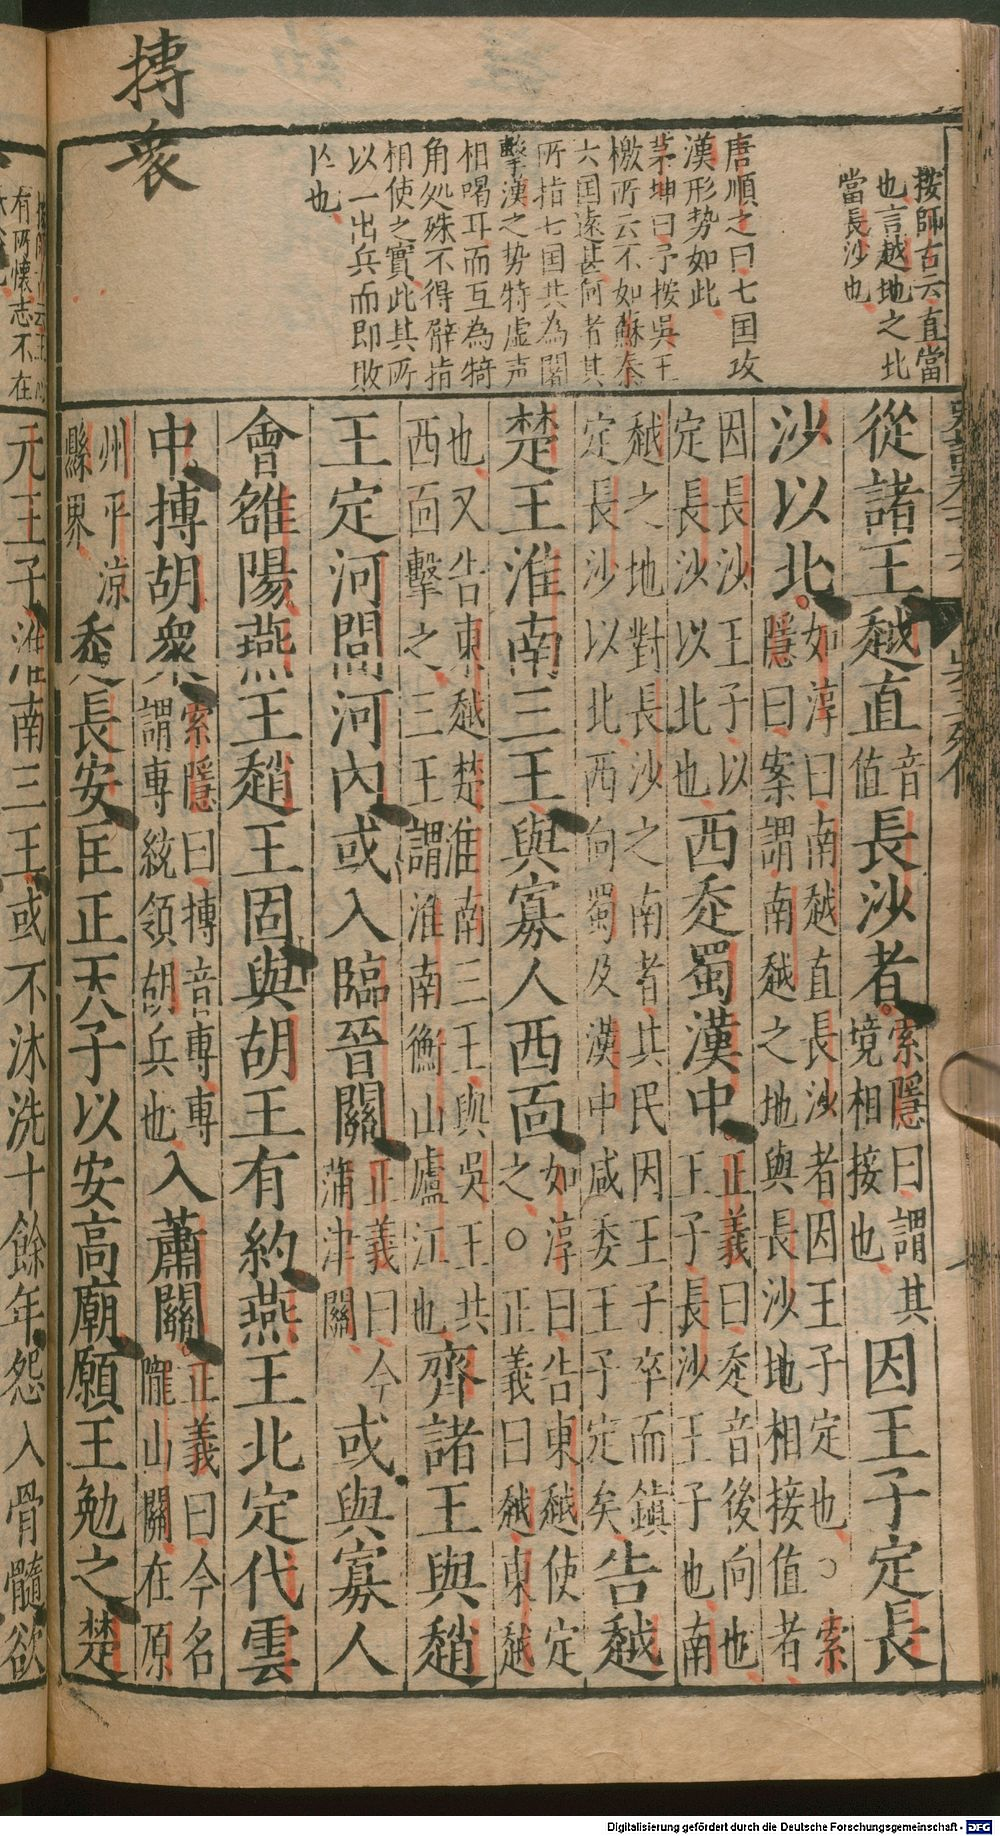 按師古云直當
也言越地之北
當長沙也
唐順之曰七国攻
漢形势如此
茅坤曰予按吳王
檄所云不如蘇秦
六国遠甚何者其
所指七国共為闘
擊漢之势特虚声
相喝耳而互為犄
角処殊不得臂指
相使之實此其所
以一出兵而即敗
亾也
摶衆
從諸王越直音值長沙者索隱曰謂其境相接也因王子定長
沙以北如淳曰南越直長沙者因王子定也○索隱曰案謂南越之地與長沙地相接值者
因長沙王子以定長沙以北也西走蜀漢中正義曰走音後向也王子長沙王子也南
越之地對長沙之南者其民因王子卒而鎮定長沙以北西向蜀及漢中咸委王子定矣告越
楚王淮南三王與寡人西面如淳曰告東越使定之○正義曰越東越
也又告東越楚淮南三王與吳王共西面擊之三王謂淮南衡山廬江也齊諸王與趙
王定河間河內或入臨晉關正義曰今蒲津關或與寡人
會雒陽燕王趙王固與胡王有約燕王北定代雲
中摶胡衆索隱曰摶音專專謂專統領胡兵也入蕭關正義曰今名隴山關在原
州平涼縣界走長安匡正天子以安高廟願王勉之楚
有所懷志不在
元王子淮南三王或不沐洗十餘年怨入骨髓欲
Digitalisierung gefördert durch die Deutsche Forschungsgemeinschaft - DFG